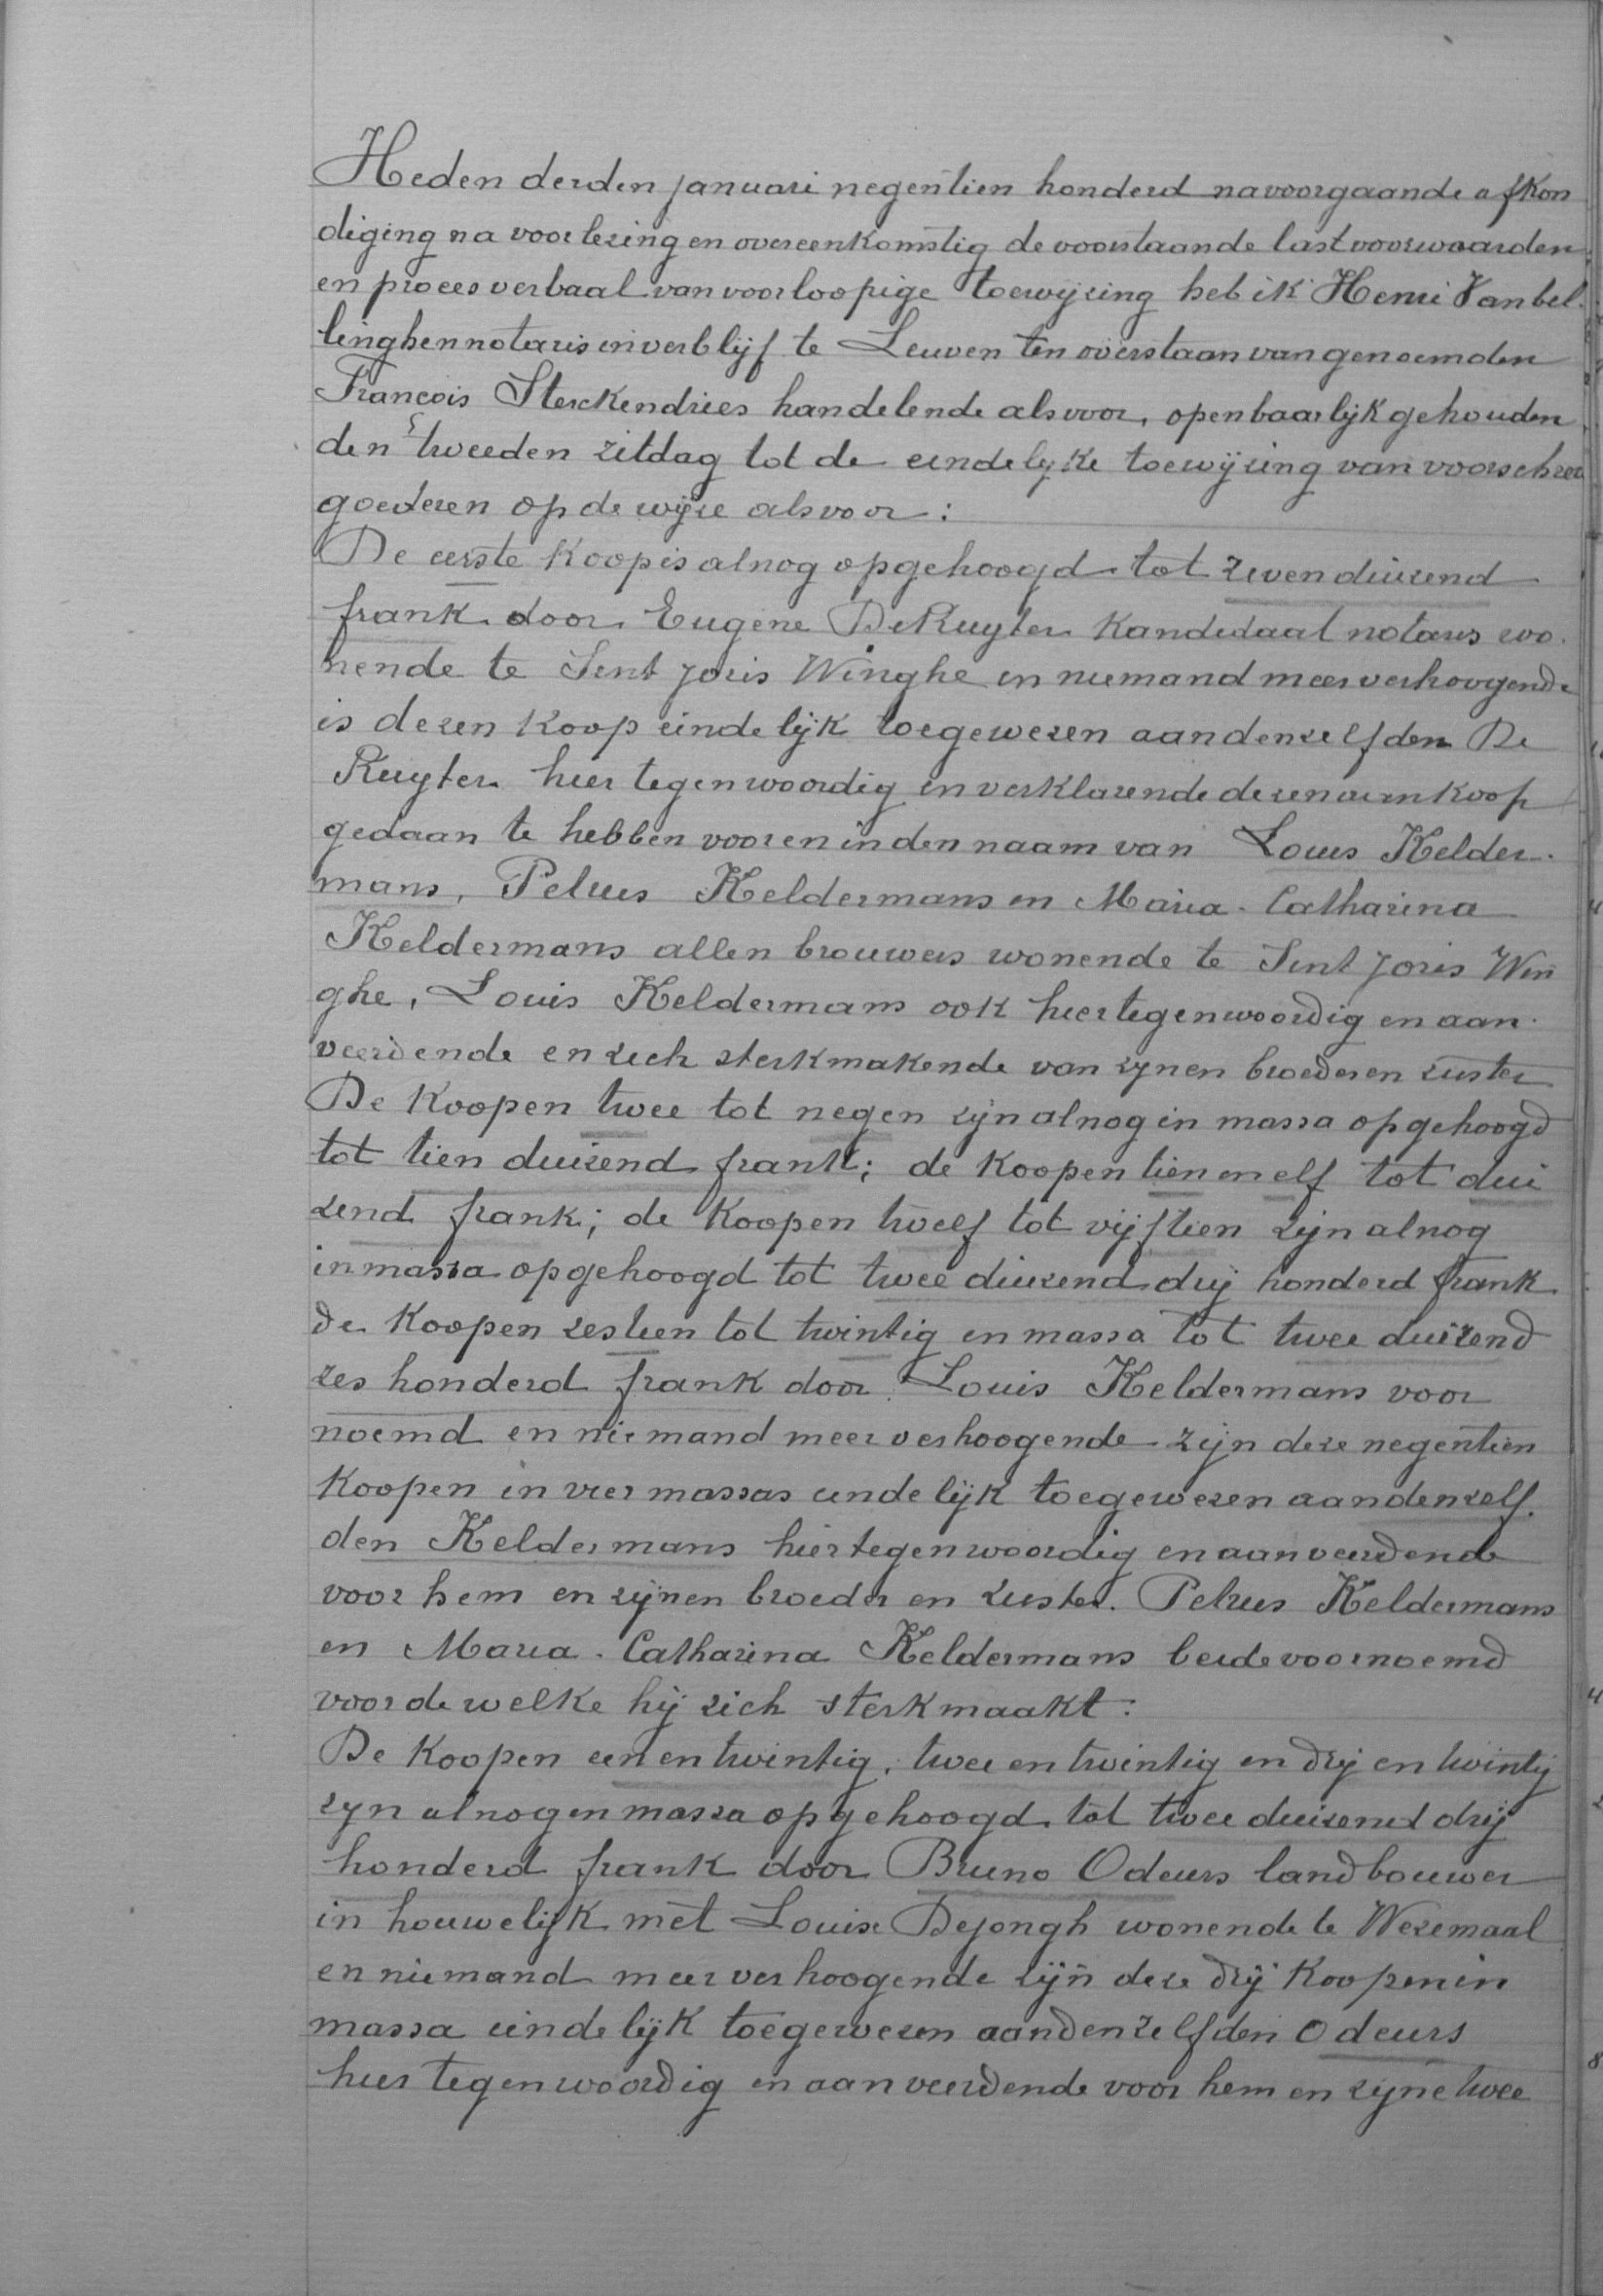 Heden derden januari negentien honderd na voorgaande afkon
diging na voorlezing en overeenkomstig de voorstaande last voorwaarden
en proces verbaal van voorloopige toewijzing heb ik Henri Vanbel-
linghen notaris in verblijf te Leuven ten overstaan van genoemden
Francois Sterckendries handelende als voor, openbaarlijk gehouden
den tweeden zitdag tot de eindelyke toewijzing van voorschreven
goederen op de wijze als voor:
De eerste koop is alnog opgehoogd tot zeven duizend
frank door Eugene De Ruyter kandidaat notaris wo-
nende te Sint Joris Winghe en niemand meer verhoogende
is dezen koop eindelijk toegewezen aan denzelfden De
Ruyter hier tegenwoordig en verklarende dezen aankoop
gedaan te hebben voor en in den naam van Louis Kelder-
mans, Petrus Keldermans en Maria-Catharina
Keldermans allen brouwers wonende te Sint Joris Win
ghe, Louis Keldermans ook hier tegenwoordig en aan-
veerdende en zich sterkmakende van zynen broeder en zuster
De koopen twee tot negen zijn alnog in massa opgehoogd
tot tien duizend frank; de koopen tien en elf tot dui
zend frank; de koopen twelf tot vijftien zijn alnog
in massa opgehoogd tot twee duizend drij honderd frank
de koopen zestien tot twintig in massa tot twee duizend
zes honderd frank door Louis Keldermans voor
noemd en niemand meer verhoogende zijn deze negentien
koopen in vier massas eindelijk toegewezen aan denzelf-
den Keldermans hier tegenwoordig en aanveerdende
voor hem en zijnen broeder en zuster. Petrus Keldermans
en Maria-Catharina Keldermans beide voornoemd
voor de welke hij zich sterk maakt:
De koopen een en twintig, twee en twintig en drij en twintig
zyn alnog in massa opgehoogd tot twee duizend drij
honderd frank door Bruno Odeurs landbouwer
in houwelijk met Louise Dejongh wonende te Wezemaal
en niemand meer verhoogende zijn deze drij koopen in
massa eindelijk toegewezen aan denzelfden Odeurs
hier tegenwoordig en aanveerdende voor hem en zijne twee